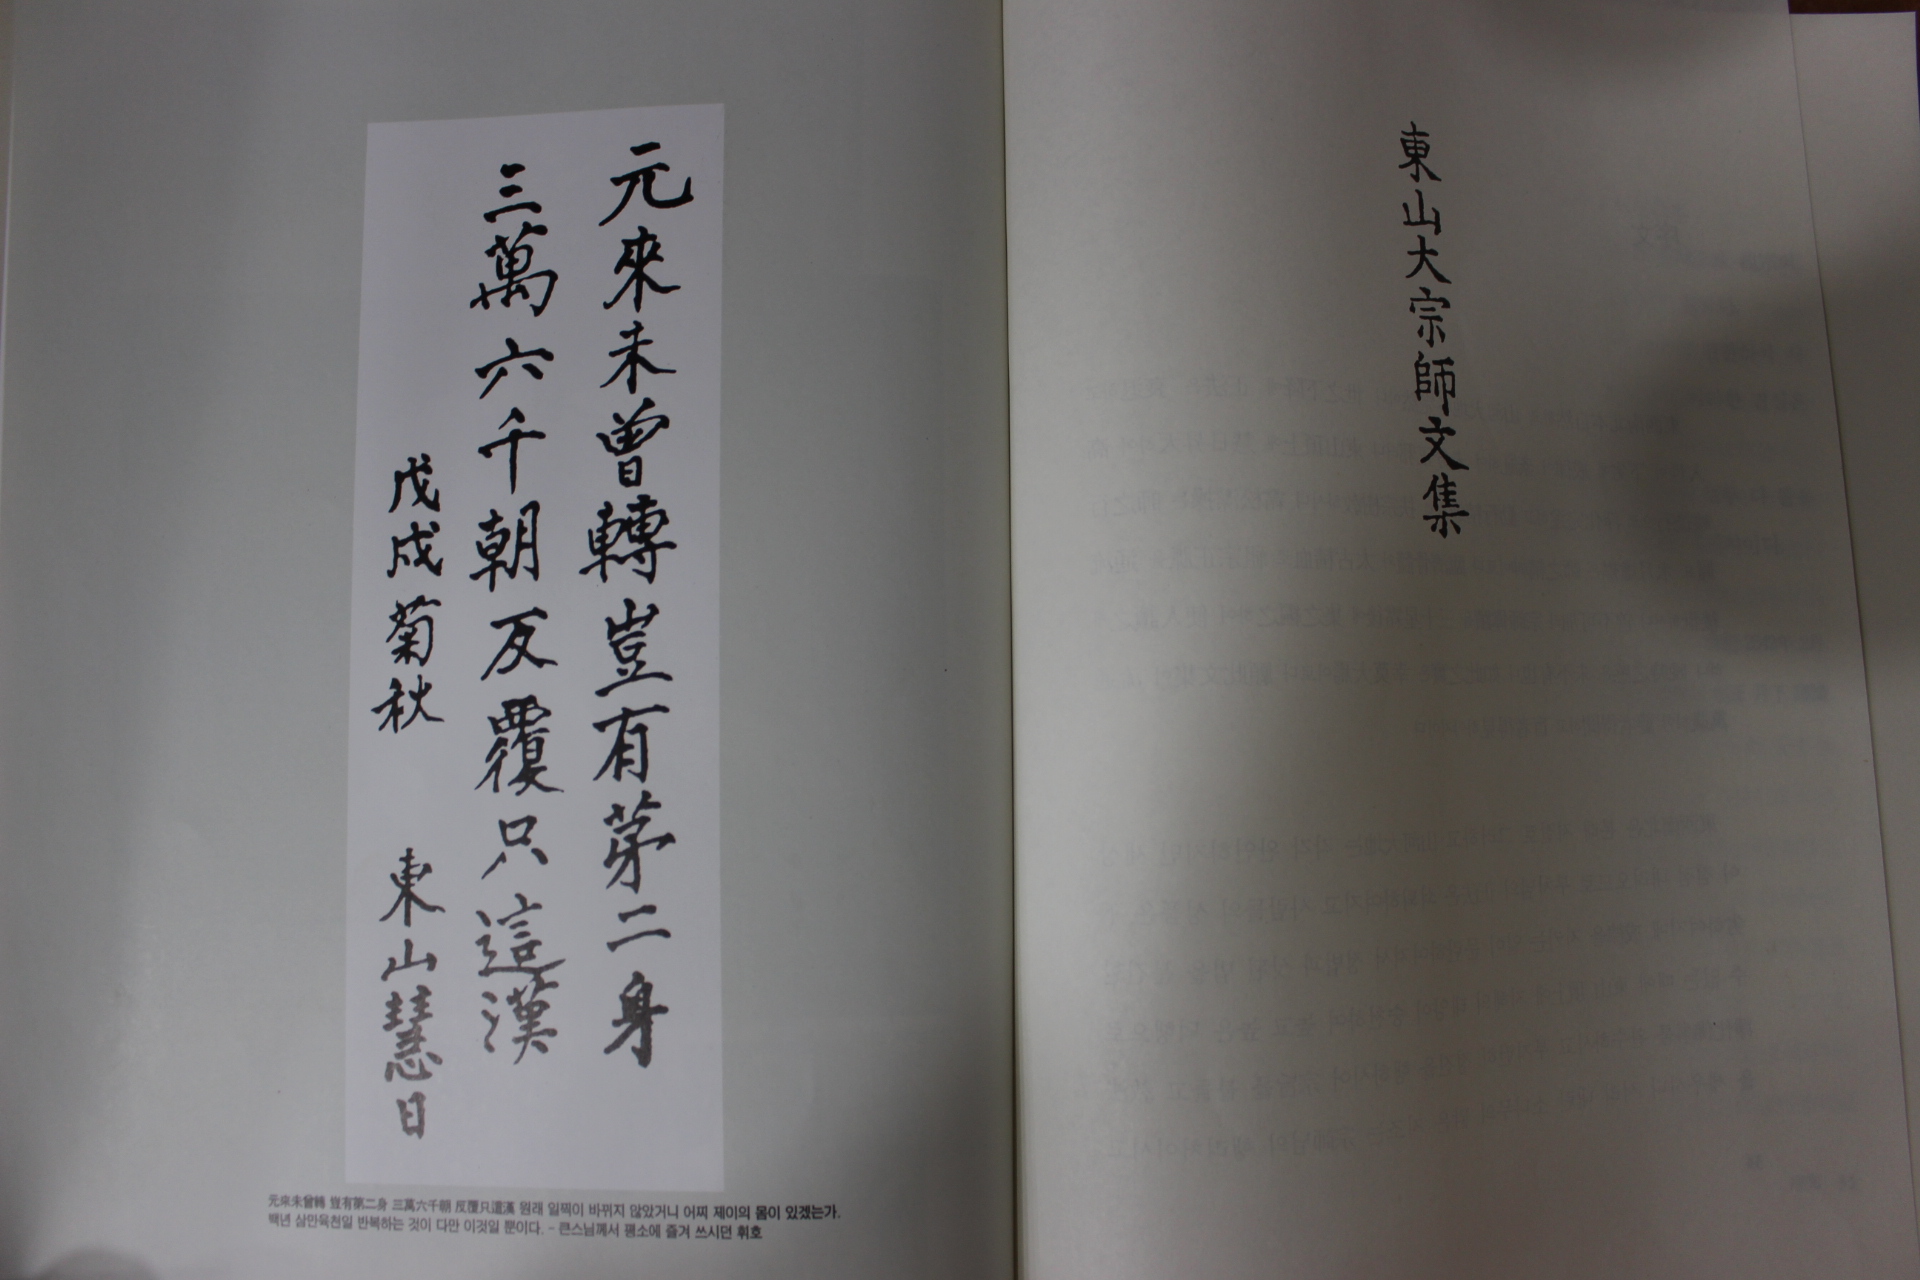 元來未曾轉豈有苐二身
三萬六千朝反覆只這漢
戊戌菊秋 東山慧日
元來未曾轉 豈有第二身 三萬六千朝 反覆只這漢 원래 일찍이 바뀌지 않았거니 어찌 제이의 몸이 있겠는가.
백년 삼만육천일 반복하는 것이 다만 이것일 뿐이다. - 큰스님께서 평소에 즐겨 쓰시던 휘호
東山大宗師文集